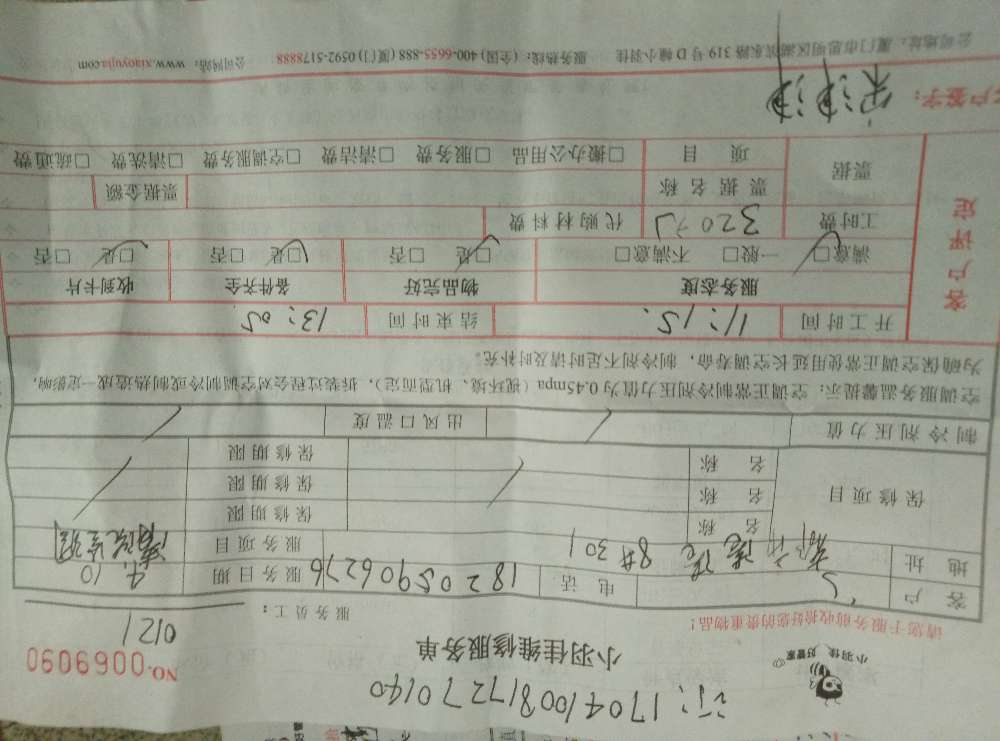 订:170410081727 0140
小羽佳 好管家
小羽佳维修服务单
NO.0069060
请您于服务前收拾拾好您的贵重物品!
服务员工:
0121
客户
电话 18205906276 服务日期 4.10
地址 8#301 服务项目 清洗空调
保修项目
名称 保修期限
名称 保修期限
名称 保修期限
制冷剂压力值 出风口温度
空调服务温馨提示:空调正常制冷剂压力值为0.45mpa(视环境、机型而定),拆装过程会对空调制冷或制热造成一定影响,
为确保空调正常使用延长空调寿命,制冷剂不足时请及时补充。
客户评定
开工时间 11:15. 结束时间 13:05.
服务态度 物品完好 备件齐全 收到卡片
满意□ 一般□ 不满意□ □是 □否 □是 □否 □是 □否
工时费 320元 代购材料费
票据 票据名称 票据金额
项目 □搬办公用品 □服务费 □清洁费 □空调服务费 □清洗费 □疏通费
客户签字:
公司地址:厦门市思明区湖滨东路319号D幢小羽佳 服务热线:(全国)400-6655-888 (厦门)0592-5178888 公司网站:www.xiaoyujia.com